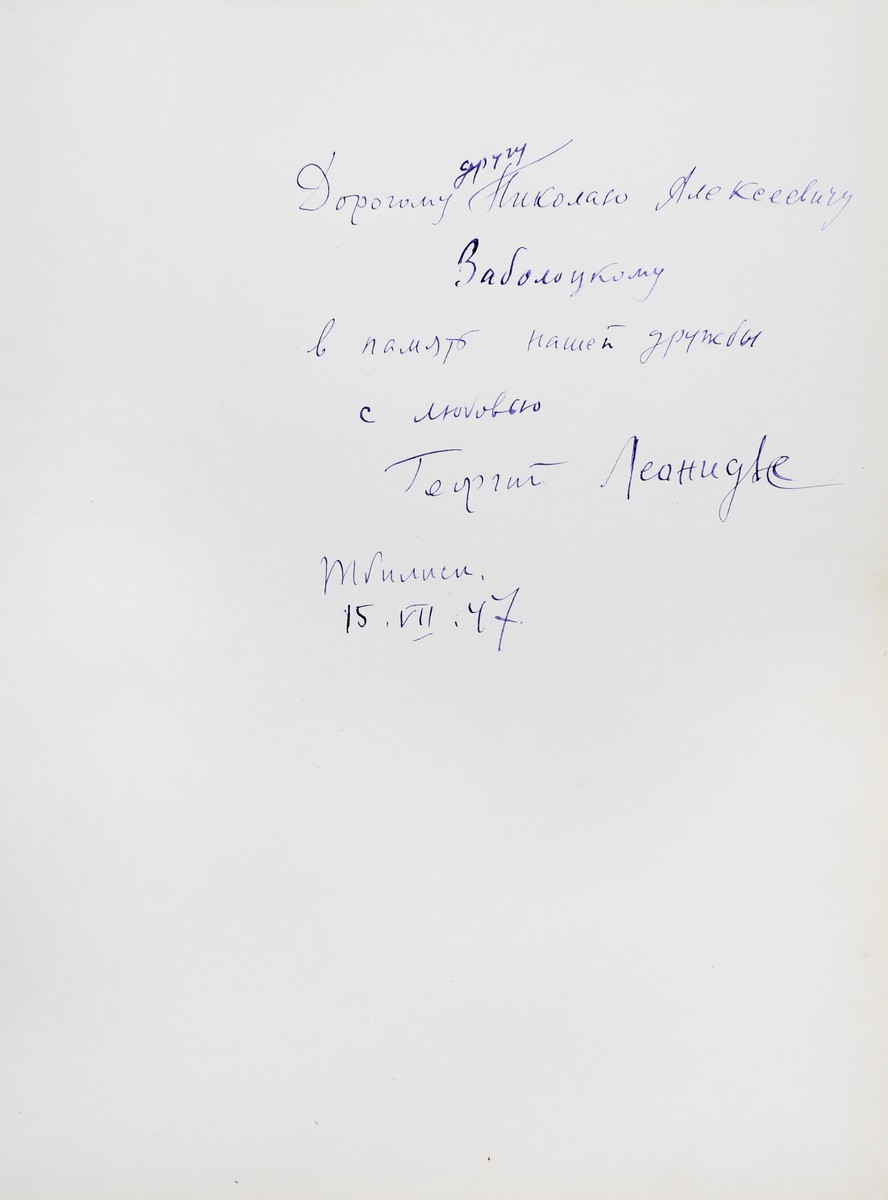 Дорогому другу Николаю Алексеевичу
Заболоцкому
в память нашей дружбы
с любовью
Георгий Леонидзе
Тбилиси.
15.VII.47.